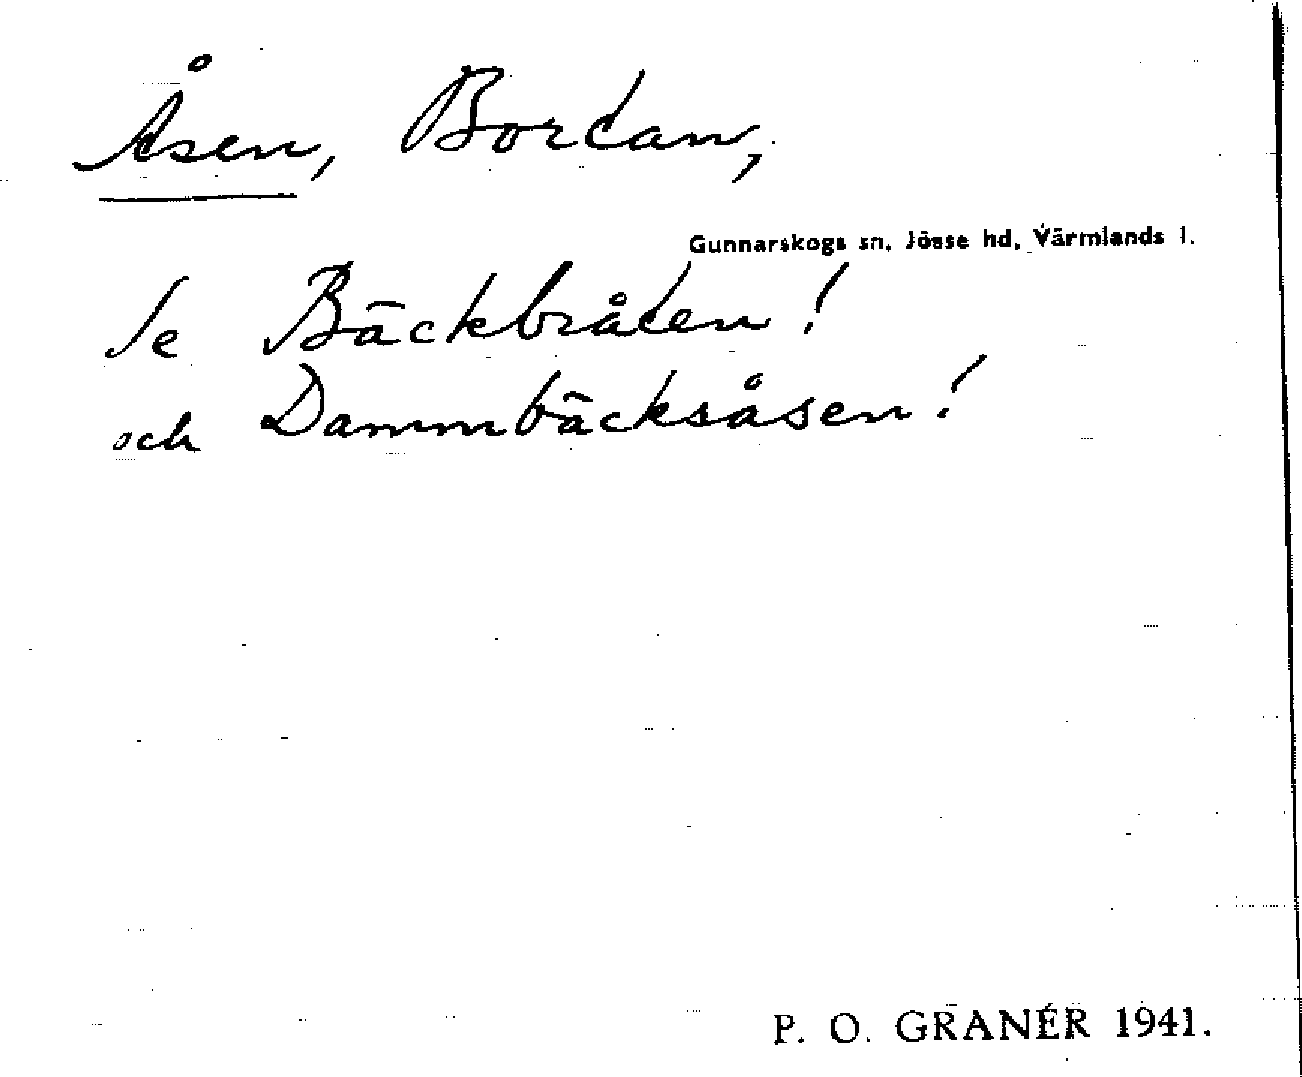 Åsen, Bordan,
Gunnarskogs sn, Jösse hd, Värmlands l.
Se Bäckbråten!
och Dammbäcksåsen!
P. O. GRANÉR 1941.